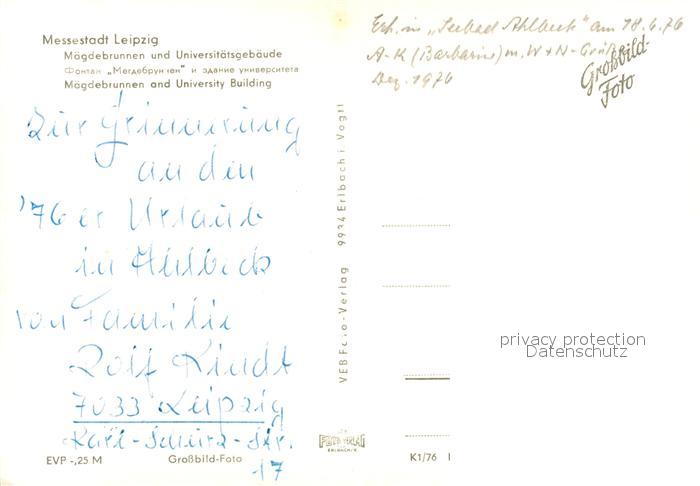 Messestadt Leipzig
Mägdebrunnen und Universitätsgebäude
Фонтан „Мегдебруннен" и здание университета
Mägdebrunnen and University Building
Zur Erinnerung
an den
'76er Urlaub
in Ahlbeck
von Familie
Rolf Kindt
7033 Leipzig
Karl-Schurz-Str.
17
EVP -,25 M Großbild-Foto
VEB Foto-Verlag 9934 Erlbach i Vogtl
FOTO VERLAG
ERLBACH/V.
Erh. in „Seebad Ahlbeck" am 18.6.76
A-K (Barbarine) m. W + N-Grüß
Dez. 1976
Großbild-
Foto
privacy protection
Datenschutz
K1/76